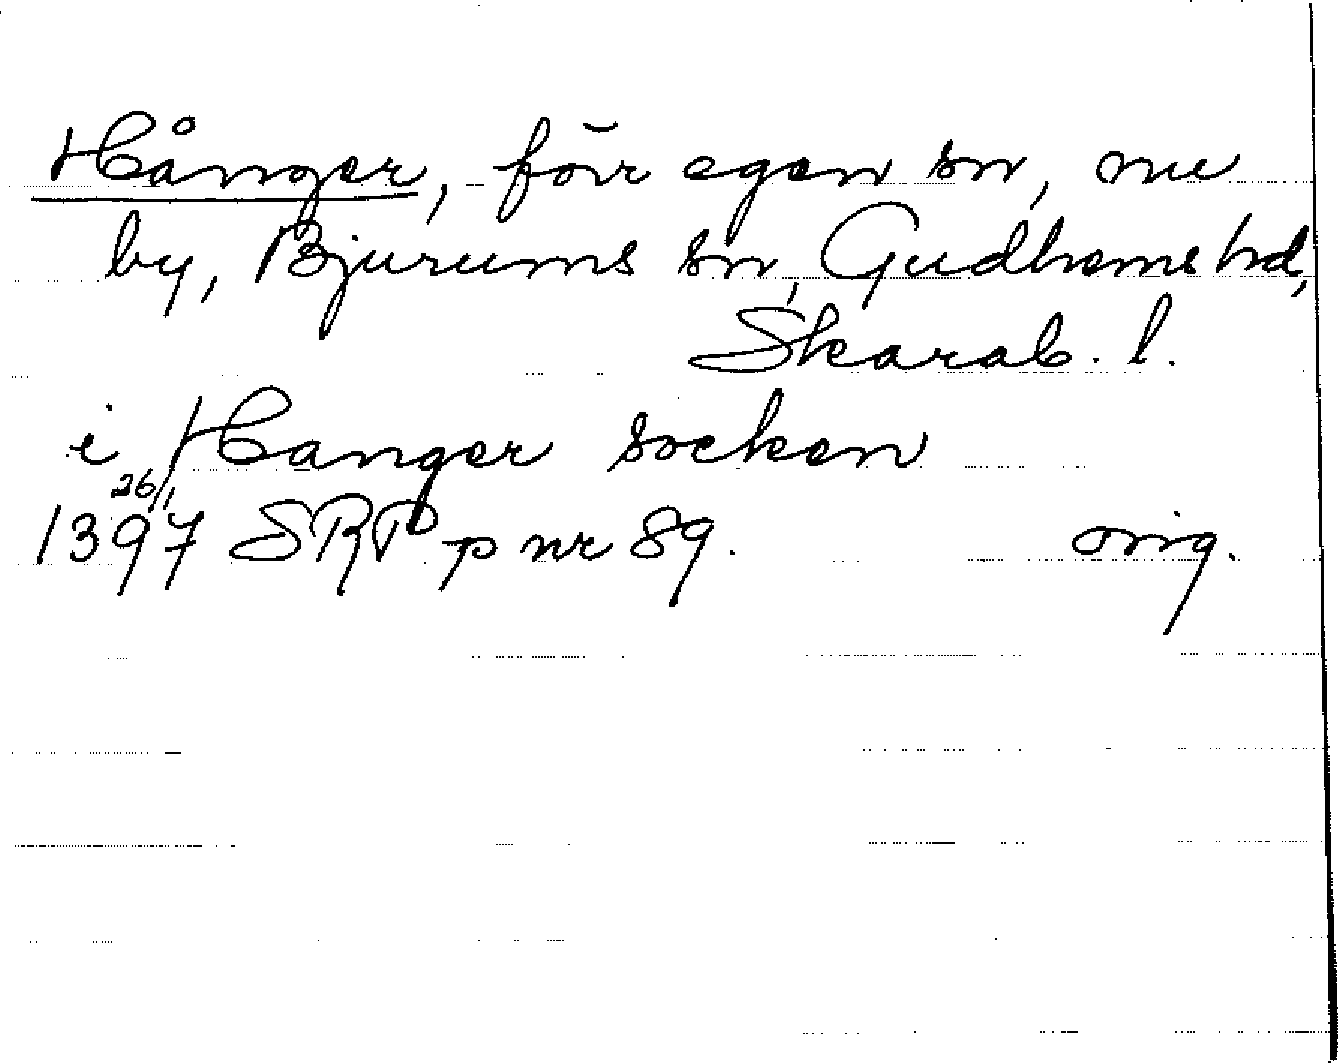 Hånger, förr egen sn, nu
by, Bjurums sn, Gudhems hd,
Skarab. l.
i Hanger socken
26/1
1397 SRP p nr 89. orig.